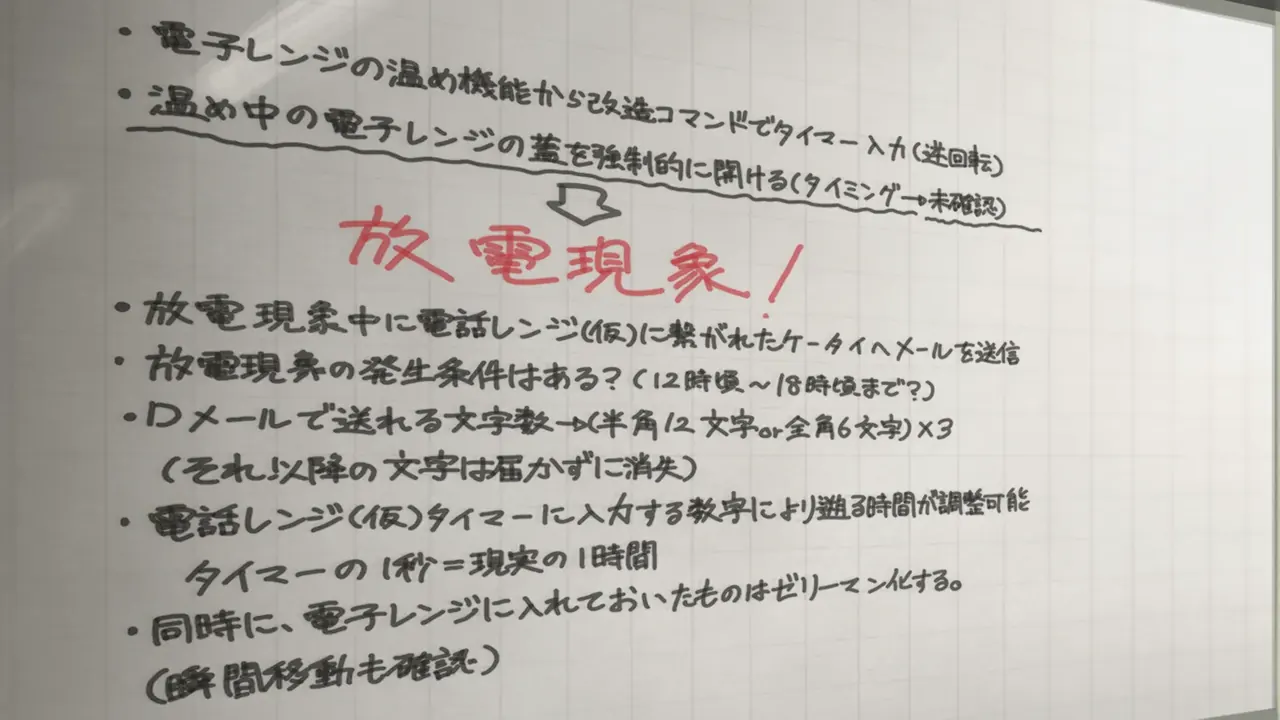 ・電子レンジの温め機能から改造コマンドでタイマー入力(逆回転)
・温め中の電子レンジの蓋を強制的に開ける(タイミング→未確認)
放電現象!
・放電現象中に電話レンジ(仮)に繋がれたケータイへメールを送信
・放電現象の発生条件はある?(12時頃～18時頃まで?)
・Dメールで送れる文字数→(半角12文字or全角6文字)×3
(それ以降の文字は届かずに消失)
・電話レンジ(仮)タイマーに入力する数字により遡る時間が調整可能
タイマーの1秒=現実の1時間
・同時に、電子レンジに入れておいたものはゼリーマン化する。
(瞬間移動も確認)